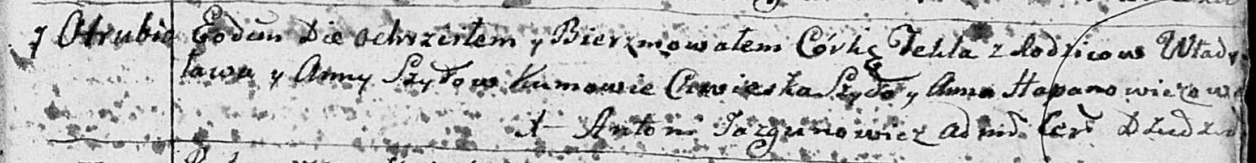 7 Otrubia Eodem Die ochrzciłem y Bierzmowałem Córkę Tekla z Rodzicow Włady
ława y Anny Szydow Kumowie Chwieśka Szydo y Anna Haponowiczowa
X Antoni Jazgunowicz Admr Cer Dziedzi